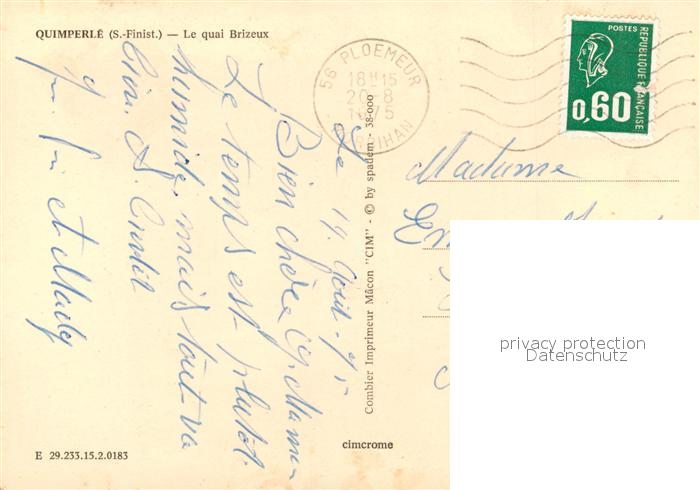 QUIMPERLÉ (S.-Finist.) — Le quai Brizeux
56 PLOEMEUR
18H15
20-8
1975
MORBIHAN
POSTES
RÉPUBLIQUE FRANÇAISE
0,60
Le 19 Août 75
Bien chère
Le temps est plutôt
humide, mais tout va
bien.
et
Madame
Combier Imprimeur Mâcon "CIM" - © by spadem - 38-000
privacy protection
Datenschutz
cimcrome
E 29.233.15.2.0183